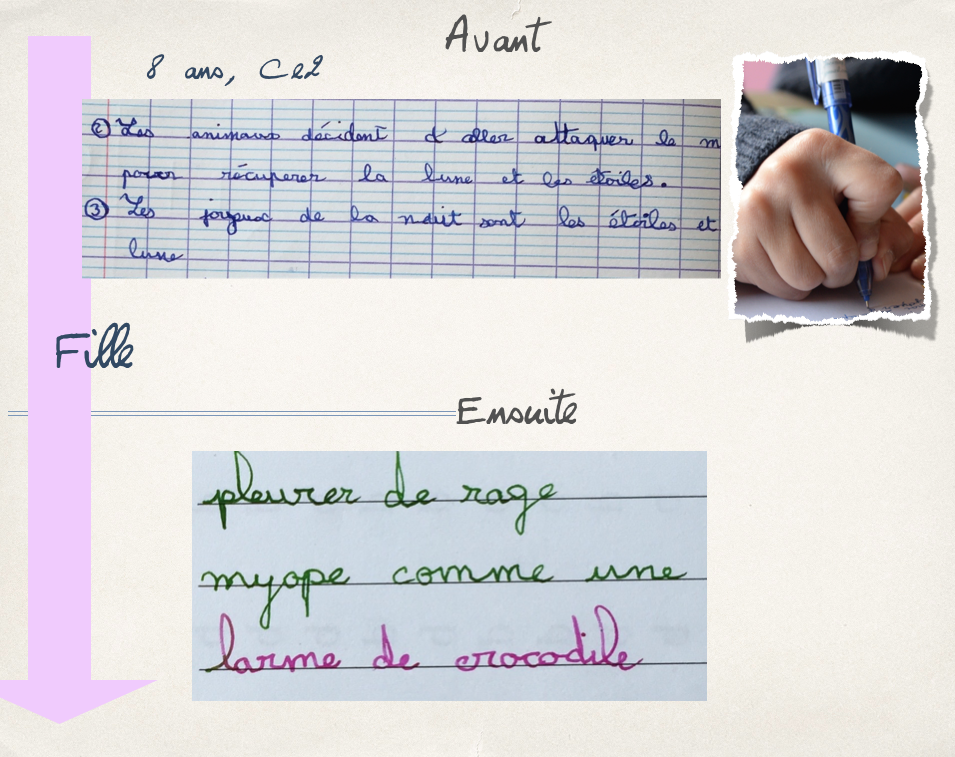 Avant
8 ans, Ce2
② Les animaux décident d'aller attaquer le m
pour récuperer la lune et les étoiles.
③ Les joyeux de la nuit sont les étoiles et
lune
Fille
Ensuite
pleurer de rage
myope comme une
larme de crocodile